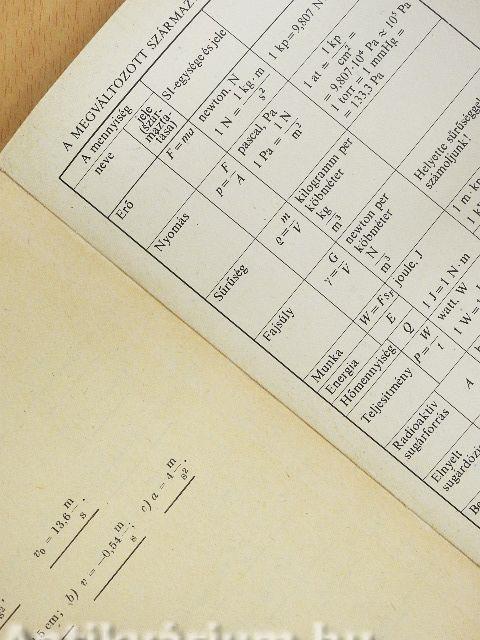 A MEGVÁLTOZOTT SZÁRMAZ
A mennyiség
neve
jele
(szár-
mazta-
tása)
SI-egysége és jele
Erő
F = ma
newton, N
1 N = 1 kg · m / s²
1 kp = 9,807 N
Nyomás
p = F / A
pascal, Pa
1 Pa = 1 N / m²
1 at = 1 kp / cm² =
= 9,807·10⁴ Pa ≈ 10⁵ Pa
1 torr = 1 mmHg =
= 133,3 Pa
Sűrűség
ϱ = m / V
kilogramm per
köbméter
kg / m³
Fajsúly
γ = G / V
newton per
köbméter
N / m³
Helyette sűrűségge
számoljunk!
Munka
W = Fs
Energia
E
Hőmennyiség
Q
joule, J
1 J = 1 N · m
1 m ·
Teljesítmény
P = W / t
watt, W
1 W =
Radioaktív
sugárforrás
A
Elnyelt
sugárdózi
Be
v₀ = 13,6 m / s .
5 cm; b) v = −0,54 m / s ; c) a = 4 m / s² .
Antikvárium.hu